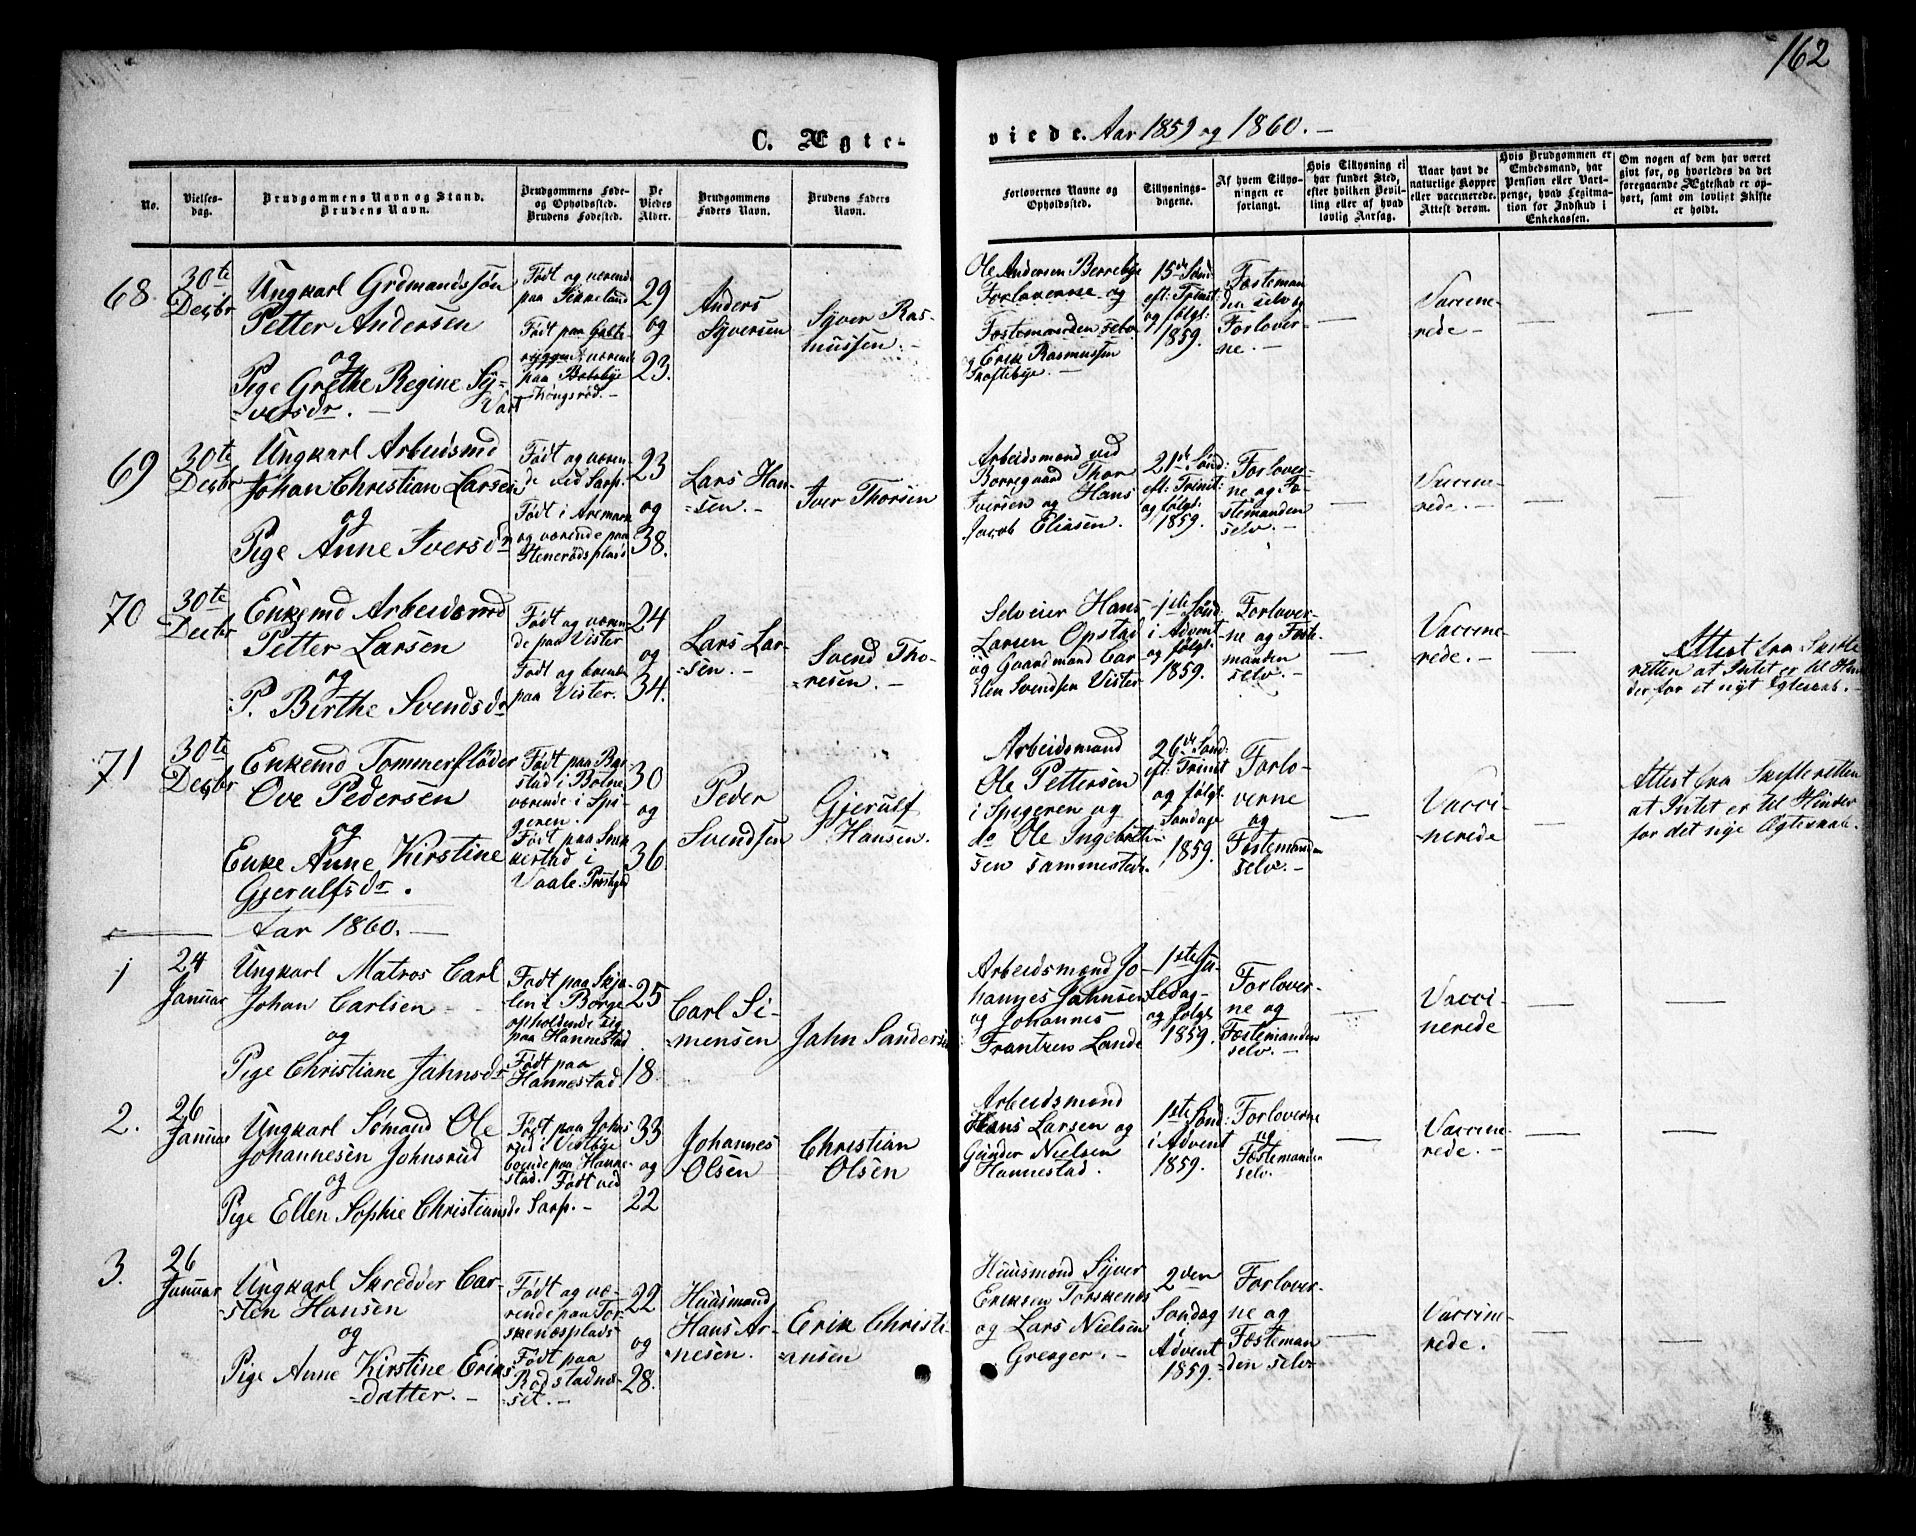 162
C. Ægte-
viede. Aar 1859 og 1860. -
No.
Vielses-
dag.
Brudgommens Navn og Stand.
Brudens Navn.
Brudgommens Føde-
og Opholdssted.
Brudens Fødested.
De
Viedes
Alder.
Brudgommens
Faders Navn.
Brudens Faders
Navn.
Forlovernes Navne og
Opholdssted.
Tillysnings-
dagene.
Af hvem Tillys-
ningen er
forlangt.
Hvis Tillysning ei
har fundet Sted,
efter hvilken Bevil-
ling eller af hvad
lovlig Aarsag.
Naar havt de
naturlige Kopper
eller vaccinerede.
Attest derom.
Hvis Brudgommen er
Embedsmand, har
Pension eller Vart-
penge, hvad Legitima-
tion for Indskud i
Enkekassen.
Om nogen af dem har været
gift før, og hvorledes da det
foregaaende Ægteskab er op-
hørt, samt om lovligt Skifte
er holdt.
68.
30te
Decbr
Ungkarl
Petter Andersen
og
Pige Grethe Regine Sy-
versdr. -
Født og værende
paa
Født paa
værende
paa
29
og
23.
Anders
Syversen
Syver Ras-
mussen. -
Ole Andersen Berrebye
Forloverne og
Fostemanden selv
og Erik Rasmussen
15de Sønd
eft: Trinit:
og følgt
1859.
Fosteman
den selv og
Forlover-
ne. -
Vaccine-
rede -
69
30te
Decbr
Ungkarl Arbeidsmd
Johan Christian Larsen
og
Pige Anne Iversdr
Født og væren-
de ved Sarp.
Født i Aremark
og værende paa
Stenerødsplads
23
og
38.
Lars Han-
sen. -
Iver Thorsen
Arbeidsmand ved
Borregaard Thor
Iversen og Hans
Jacob Eliasen. -
21de Sønd:
eft: Trinit:
og følgt:
1859.
Forlover-
ne og Fo-
stemanden
selv. -
Vaccine-
rede. -
70
30te
Decbr
Enkemd Arbeidsmd
Petter Larsen
og
P. Birthe Svendsdr
Født og væren-
de paa Vister
Født og boende
paa Vister.
24
og
34.
Lars Lar-
sen. -
Svend Tho-
resen. -
Selveier Hans
Larsen Opstad
og Gaardmand Car-
sten Svendsen Vister
1ste Sønd
i Advent
og følgt
1859.
Forlover-
ne og Foste-
manden
selv. -
Vaccine-
rede. -
Attest fra Skifte
retten at Intet er til Hin
der for et nyt Egteskab. -
71
30te
Decbr
Enkemd Tømmerfløder
Ove Pedersen
og
Enke Anne Kirstine
Gjerulfsdr.
Født paa Bar-
stad i
værende i Spi-
geren.
Født paa
i
Vaale Præstgjd
30
og
36.
Peder
Svendsen
Gjerulf
Hansen.
Arbeidsmand
Ole Pettersen
i Spigeren og
do Ole Ingebrith-
sen sammesteds.
26de Sønd:
eft: Trinit
og følgt
Søndage
1859.
Forlo-
verne
og
Fostemanden
selv. -
Vacci
nerede
Attest fra Skifteretten
at Intet er til Hinder
for det nye Egteskab.
Aar 1860. -
1
24
Januar
Ungkarl Matros Carl
Johan Carlsen
og
Pige Christiane Jahnsdr
Født paa Skja-
len i Borge
opholdende sig
paa Hannestad
Født paa
Hannestad.
25
18.
Carl Si-
mensen
Jahn Sandersen
Arbeidsmand Jo-
hannes Jahnsen
og Johannes
Frantzen Lande
1ste Ju-
ledag
og følgt
1859.
Forlover-
ne og
Fæstemanden
selv. -
Vacci
nerede
2.
26
Januar
Ungkarl Sømand Ole
Johannesen Johnsrud
og
Pige Ellen Sophie Christians
Født paa Johns
rød i
boende paa Hanne-
stad. Født ved
Sarp. -
33
og
22
Johannes
Olsen
Christian
Olsen
Arbeidsmand
Hans Larsen og
Gunder Nielsen
Hannestad.
1ste Sønd:
i Advent
1859.
Forloverne
og
Fæstemanden
selv.
Vaccine-
rede. -
3.
26
Januar
Ungkarl Skrædder Car-
sten Hansen
og
Pige Anne Kirstine Eriks
datter. -
Født og væ-
rende paa Tor-
skenæsplads
Født paa
Rødstadnæ-
set. -
22
og
28.
Huusmand
Hans Ar-
nesen.
Erik Christi-
ansen
Huusmand Syver
Eriksen Torskenæs
og Lars Nielsen
Greager. -
2den
Søndag
i
Advent
1859.
Forlover-
ne og
Fæsteman
den selv
Vaccine-
rede.